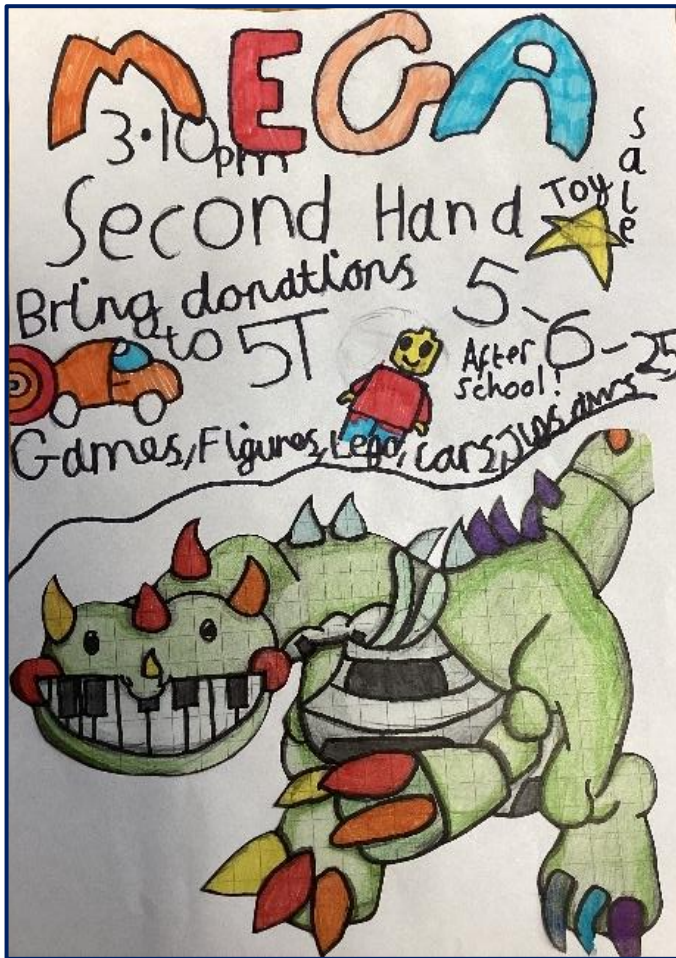 MEGA
3.10pm
Second Hand Toy
sale
Bring donations
to 5T
5-6-25
After
school!
Games, Figures, Lego, cars, Jigsaws